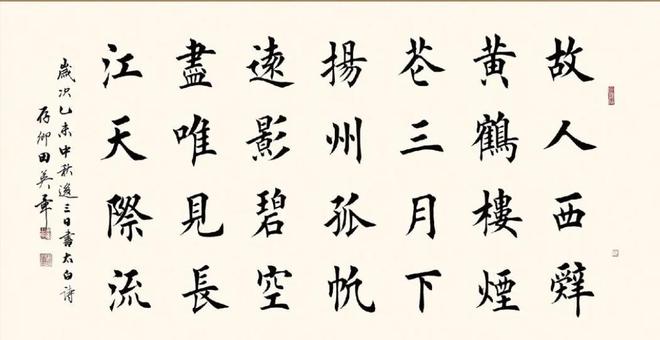 故人西辤
黃鶴樓煙
花三月下
揚州孤帆
遠影碧空
盡唯見長
江天際流
歲次乙未中秋後三日書太白詩
存卿田英章